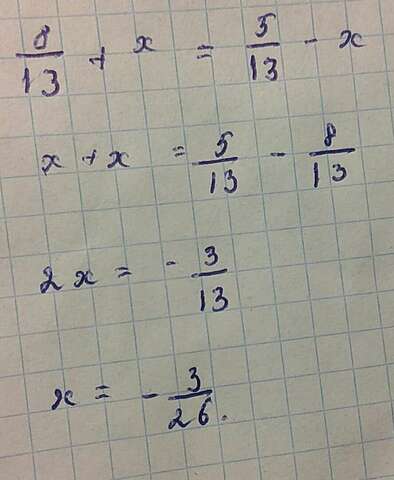 8/13 + x = 5/13 - x
x + x = 5/13 - 8/13
2x = - 3/13
x = - 3/26.